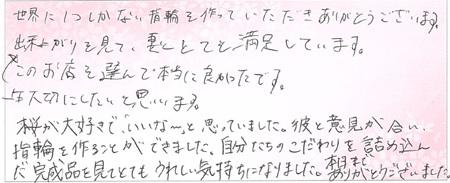 世界に1つしかない指輪を作っていただきありがとうございます。
出来上がりを見て、妻ととても満足しています。
このお店を選んで本当に良かったです。
一生大切にしたいと思います。
桜が大好きで、「いいな〜」と思っていました。彼と意見が合い、
指輪を作ることができました。自分たちのこだわりを詰め込ん
だ完成品を見てとてもうれしい気持ちになりました。本日まで
ありがとうございました。